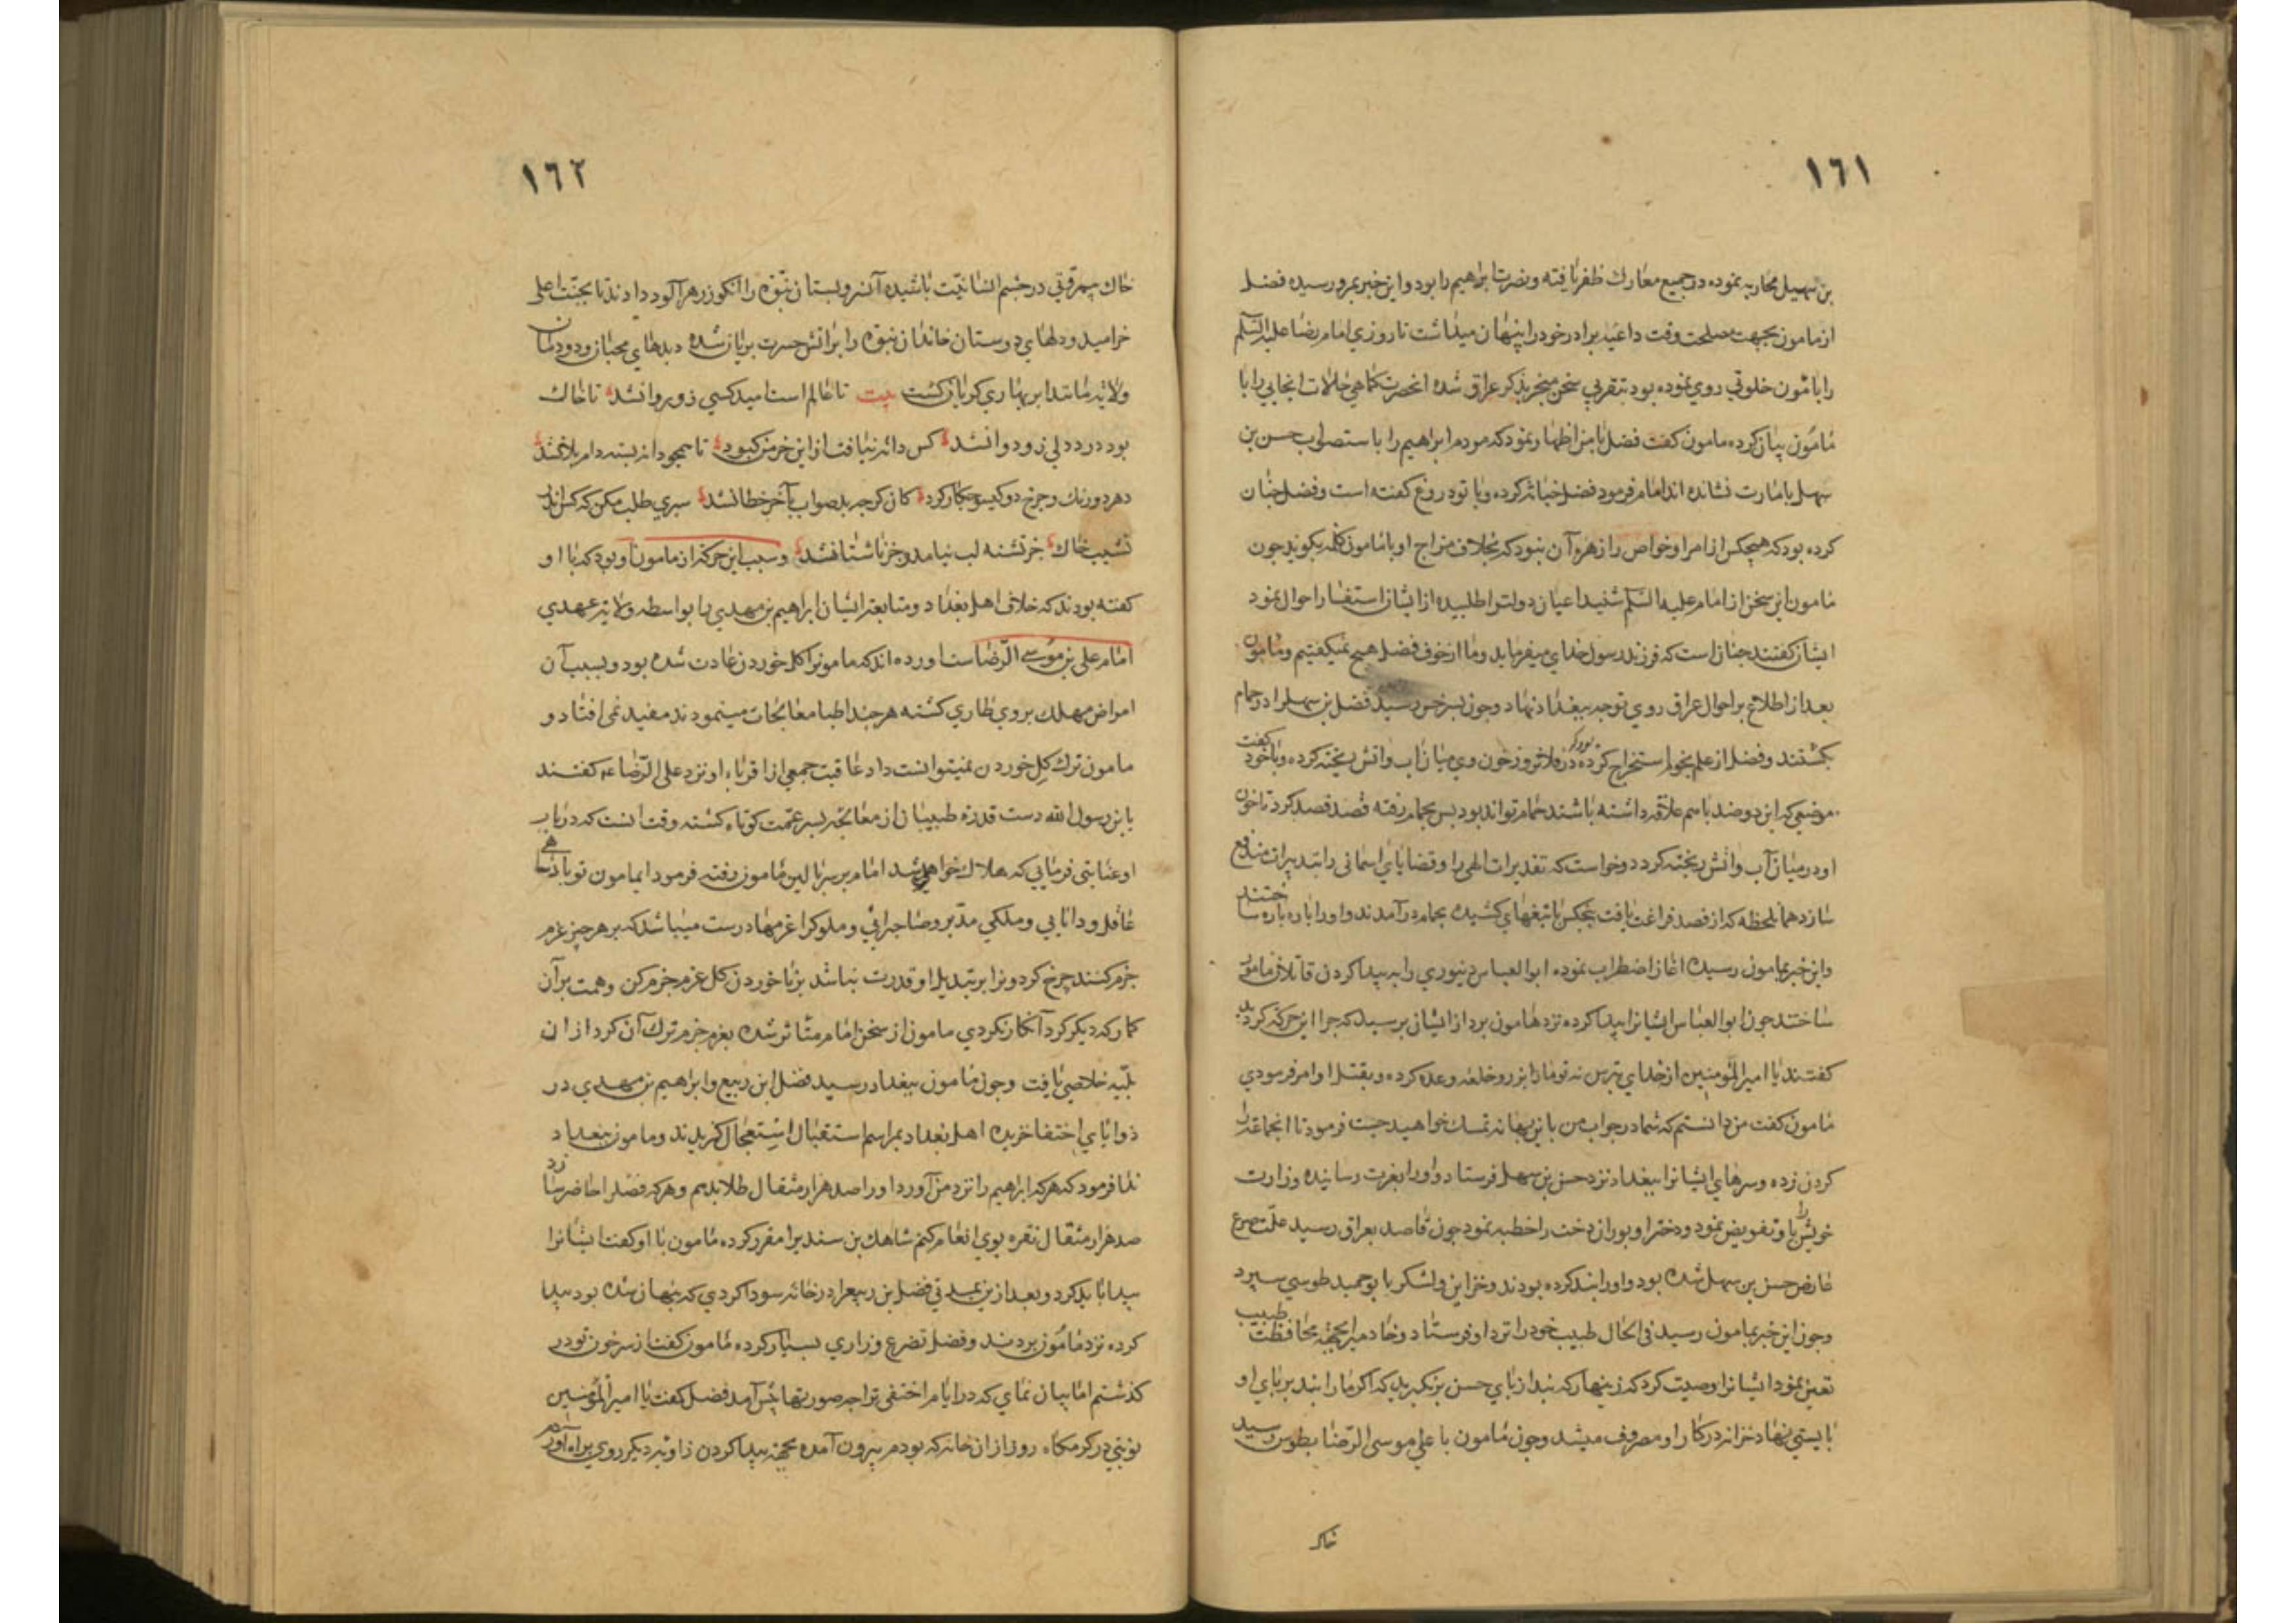 ١٦١
بن سهیل محاربه نموده در جمیع معارك ظفر یافته و نصرت ابراهیم را بود و این خبر بمرو رسیده فضل
از مامون بجهت مصلحت وقت داعیه برادر خود را پنهان میداشت تا روزی امام رضا علیه السلم
را با مامون خلوتی روی نموده بود بتقریبی سخن منجر بذکر عراق شده انحضرت کماهی حالات انجایی را با
مامون بیان کرده مامون کفت فضل با من اظهار نمود که مردم ابراهیم را باستصواب حسن بن
سهل بامارت نشانده اند امام فرمود فضل خیانة کرده و با تو دروغ کفته است و فضل چنان
کرده بود که هیچکس از امرا و خواص را زهره آن نبود که بخلاف مزاج او با مامون کلمه بکوید چون
مامون این سخن از امام علیه السلم شنید اعیان دولترا طلبیده از ایشان استفسار احوال نمود
ایشان کفتند چنان است که فرزند رسول خدای میفرماید و ما از خوف فضل هیچ نمیکفتیم و مامون
بعد از اطلاع بر احوال عراق روی توجه ببغداد نهاد و چون بسرخس رسید فضل بن سهل را در حمام
بکشتند و فضل از علم نجوم استخراج کرده بود که در فلان روز خون وی میان آب و اتش ریخته کرده و با خود کفت
موضعی که این دو ضد باهم علاقه داشته باشند حمام تواند بود پس بحمام رفته قصد فصد کرد تا خون
او در میان آب و اتش ریخته کردد و خواست که تقدیرات الهی را و قضایای اسمانی را بتدبیرات مندفع
سازد همان لحظه که از فصد فراغت یافت پنجکس با تیغهای کشیده بحمام در آمدند و او را پاره پاره ساختند
و این خبر بمامون رسیده اغاز اضطراب نموده ابو العباس دینوری را به پیدا کردن قاتلان مامور
ساختند چون ابو العباس ایشانرا پیدا کرده نزد مامون برد از ایشان پرسید که چرا این حرکه کردید
کفتند یا امیر المؤمنین از خدای بترس نه تو ما را بزر و خلعه وعده کرده و بقتل او امر فرمودی
مامون کفت من دانستم که شما در جواب من باین بهانه تمسك خواهید جست فرمود تا انجماعه را
کردن زده و سرهای ایشانرا ببغداد نزد حسن بن سهل فرستاد و او را بغربت رسانیده وزارت
خویش را باو تفویض نمود و دختر او بوران دخت را خطبه نمود چون قاصد بعراق رسید علّت صرع
عارض حسن بن سهل شده بود و او را بند کرده بودند و خزاین و لشکر با بوحمید طوسی سپرد
و چون این خبر بمامون رسید فی الحال طبیب خود را نزد او فرستاد و خادمی را بجهة محافظت طبیب
تعین نمود و ایشانرا وصیت کرد که زینهار که بند از پای حسن بر نکیرید که اکر ما را بند بر پای او
بایستی نهاد نه زر در کار او مصروف میشد و چون مامون با علی موسی الرضا بطوس رسید
خاك
١٦٢
خاك بیمروّتی در چشم انسانیّت پاشیده آن سرو بستان نبوّه را انکور زهر آلود دادند تا بجنّت اعلی
خرامید و دلهای دوستان خاندان نبوّه را بر اتش حسرت بریان شده دیدهای محبان دودمان
ولایة مانند ابر بهاری کریان کشت بیت تا عالم است امید کسی زو روا نشد تا خاك
بود درد دلی زو دوا نشد کس دانه نیافت از این خرمن کبود تا همچو دانه بسته دام بلا نشد
دهر دو رنك و چرخ دو کیسو چکار کرد کان کرچه بد صواب بآخر خطا نشد سیری طلب مکن که کس اندر
نشیب خاك جز تشنه لب نیامد و جز ناشتا نشد و سبب این حرکه از مامون او بود که با او
کفته بودند که خلاف اهل بغداد و متابعة ایشان ابراهیم بن مهدی را بواسطه ولایة عهدی
امام علی بن موسی الرّضاست اورده اند که مامونرا کل خوردن عادت شده بود و بسبب آن
امراض مهلك بر وی طاری کشته هر چند اطبا معالجات مینمودند مفید نمی افتاد و
مامون ترك کل خوردن نمیتوانست داد عاقبت جمعی از اقرباء او نزد علی الرّضاء ع کفتند
یا بن رسول الله دست قدرة طبیبان از معالجه پسر عمّت کوتاه کشته وقت انست که در باب
او عنایتی فرمایی که هلاك خواهد شد امام بر سر بالین مامون رفته فرمود ایمامون تو پادشاهی
عاقل و دانایی و ملکی مدّبر و صاحبرائی و ملوکرا عزمها درست میباشد که بر هر چیز عزم
جزم کنند چرخ کردونرا بر تبدیل او قدرت نباشد بر ناخوردن کل عزم جزم کن و همت بر آن
کمار که دیکر کرد آنکار نکردی مامون از سخن امام متاثر شده بعزم جزم ترك آن کرد از ان
بلیّه خلاصی یافت و چون مامون ببغداد رسید فضل ابن ربیع و ابراهیم بن مهدی در
زوایای اختفا خزیده اهل بغداد بمراسم استقبال استعجال کزیدند و مامون ببغداد
ندا فرمود که هر که ابراهیم را نزد من آورد او را صد هزار مثقال طلا بدهم و هر که فضل را حاضر سازد
صد هزار مثقال نقره بوی انعام کنم شاهك بن سندی را مقرر کرده مامون با او کفت ایشانرا
پیدا باید کرد و بعد از مدتی فضل بن ربیع را در خانه سوداکردی که پنهان شده بود پیدا
کرده نزد مامون بردند و فضل تضرع و زاری بسیار کرده مامون کفت از سر خون تو در
کذشتم اما بیان نمای که در ایام اختفی ترا چه صورتها پیش آمد فضل کفت یا امیر المؤمنین
نوبتی در کرمکاه روز از ان خانه که بودم بیرون آمده بجهة پیدا کردن زاویه دیکر روی براه آوردم